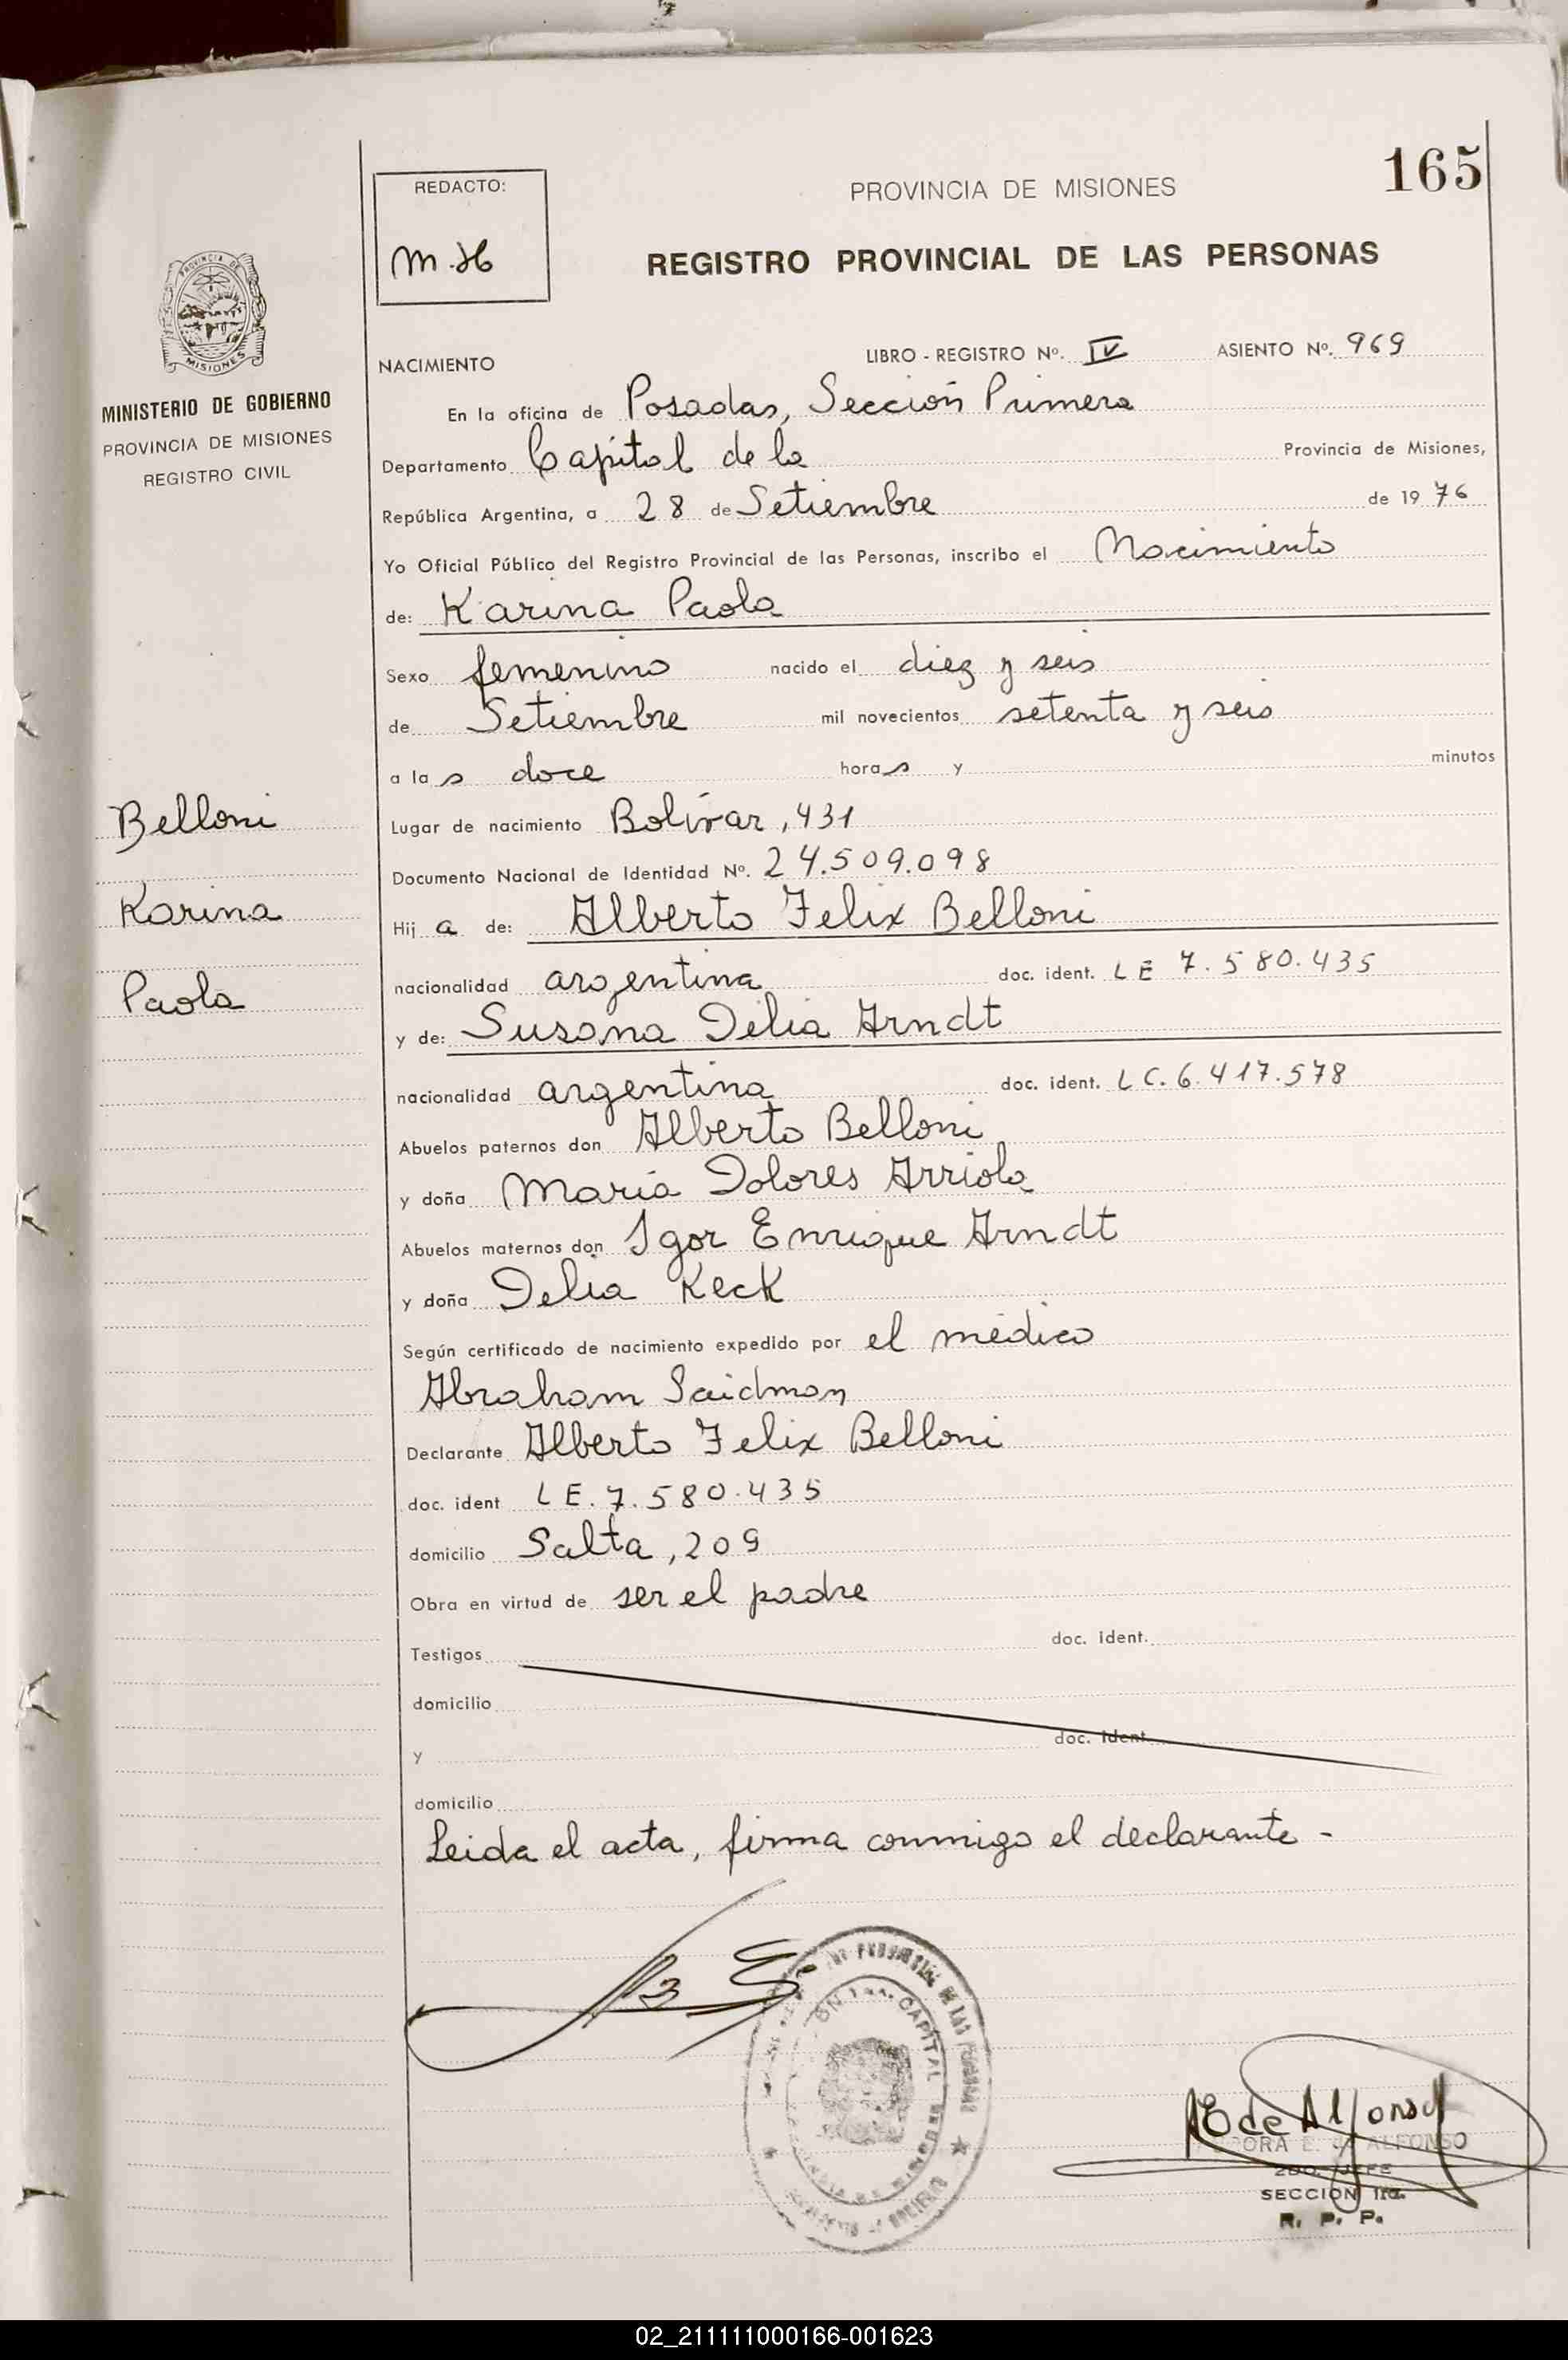 165
REDACTO:
M.H
PROVINCIA DE MISIONES
REGISTRO PROVINCIAL DE LAS PERSONAS
PROVINCIA DE
MISIONES
MINISTERIO DE GOBIERNO
PROVINCIA DE MISIONES
REGISTRO CIVIL
NACIMIENTO LIBRO - REGISTRO Nº. IV ASIENTO Nº. 969
En la oficina de Posadas, Sección Primera
Departamento Capital de la Provincia de Misiones,
República Argentina, a 28 de Setiembre de 1976
Yo Oficial Público del Registro Provincial de las Personas, inscribo el Nacimiento
de: Karina Paola
Sexo femenino nacido el diez y seis
de Setiembre mil novecientos setenta y seis
a las doce horas y minutos
Belloni
Karina
Paola
Lugar de nacimiento Bolívar, 431
Documento Nacional de Identidad Nº. 24.509.098
Hija de: Alberto Felix Belloni
nacionalidad argentina doc. ident. LE 7.580.435
y de: Susana Delia Arndt
nacionalidad argentina doc. ident. LC. 6.417.578
Abuelos paternos don Alberto Belloni
y doña María Dolores Arriola
Abuelos maternos don Igor Enrique Arndt
y doña Delia Keck
Según certificado de nacimiento expedido por el médico
Abraham Saidman
Declarante Alberto Felix Belloni
doc. ident LE. 7.580.435
domicilio Salta, 209
Obra en virtud de ser el padre
Testigos doc. ident.
domicilio
y doc. ident
domicilio
Leida el acta, firma conmigo el declarante -
CAPITAL
E de Alfonso
ORA E. de ALFONSO
2DO. JEFE
SECCION 1ra.
R. P. P.
02_211111000166-001623